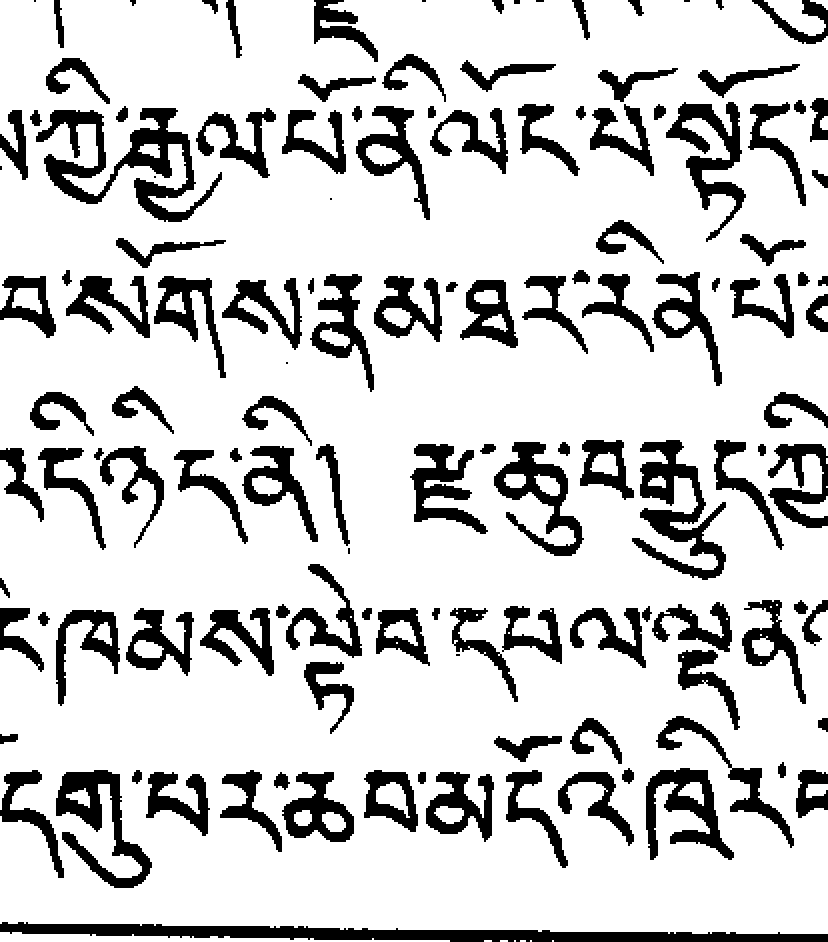 ཀྱི་རྒྱལ་པོ་ནི་ལོང་པོ་སྟོང་
བ་སོགས་རྣམ་ཐར་རིན་པོ་
དི་ཉིད་ནི། རྫ་ཆུ་བརྒྱུད་ཀྱི
ཁམས་ལྟེ་བ་དཔལ་ལྡན་
དགུ་པར་ཆབ་མདོའི་ཁྲིར་